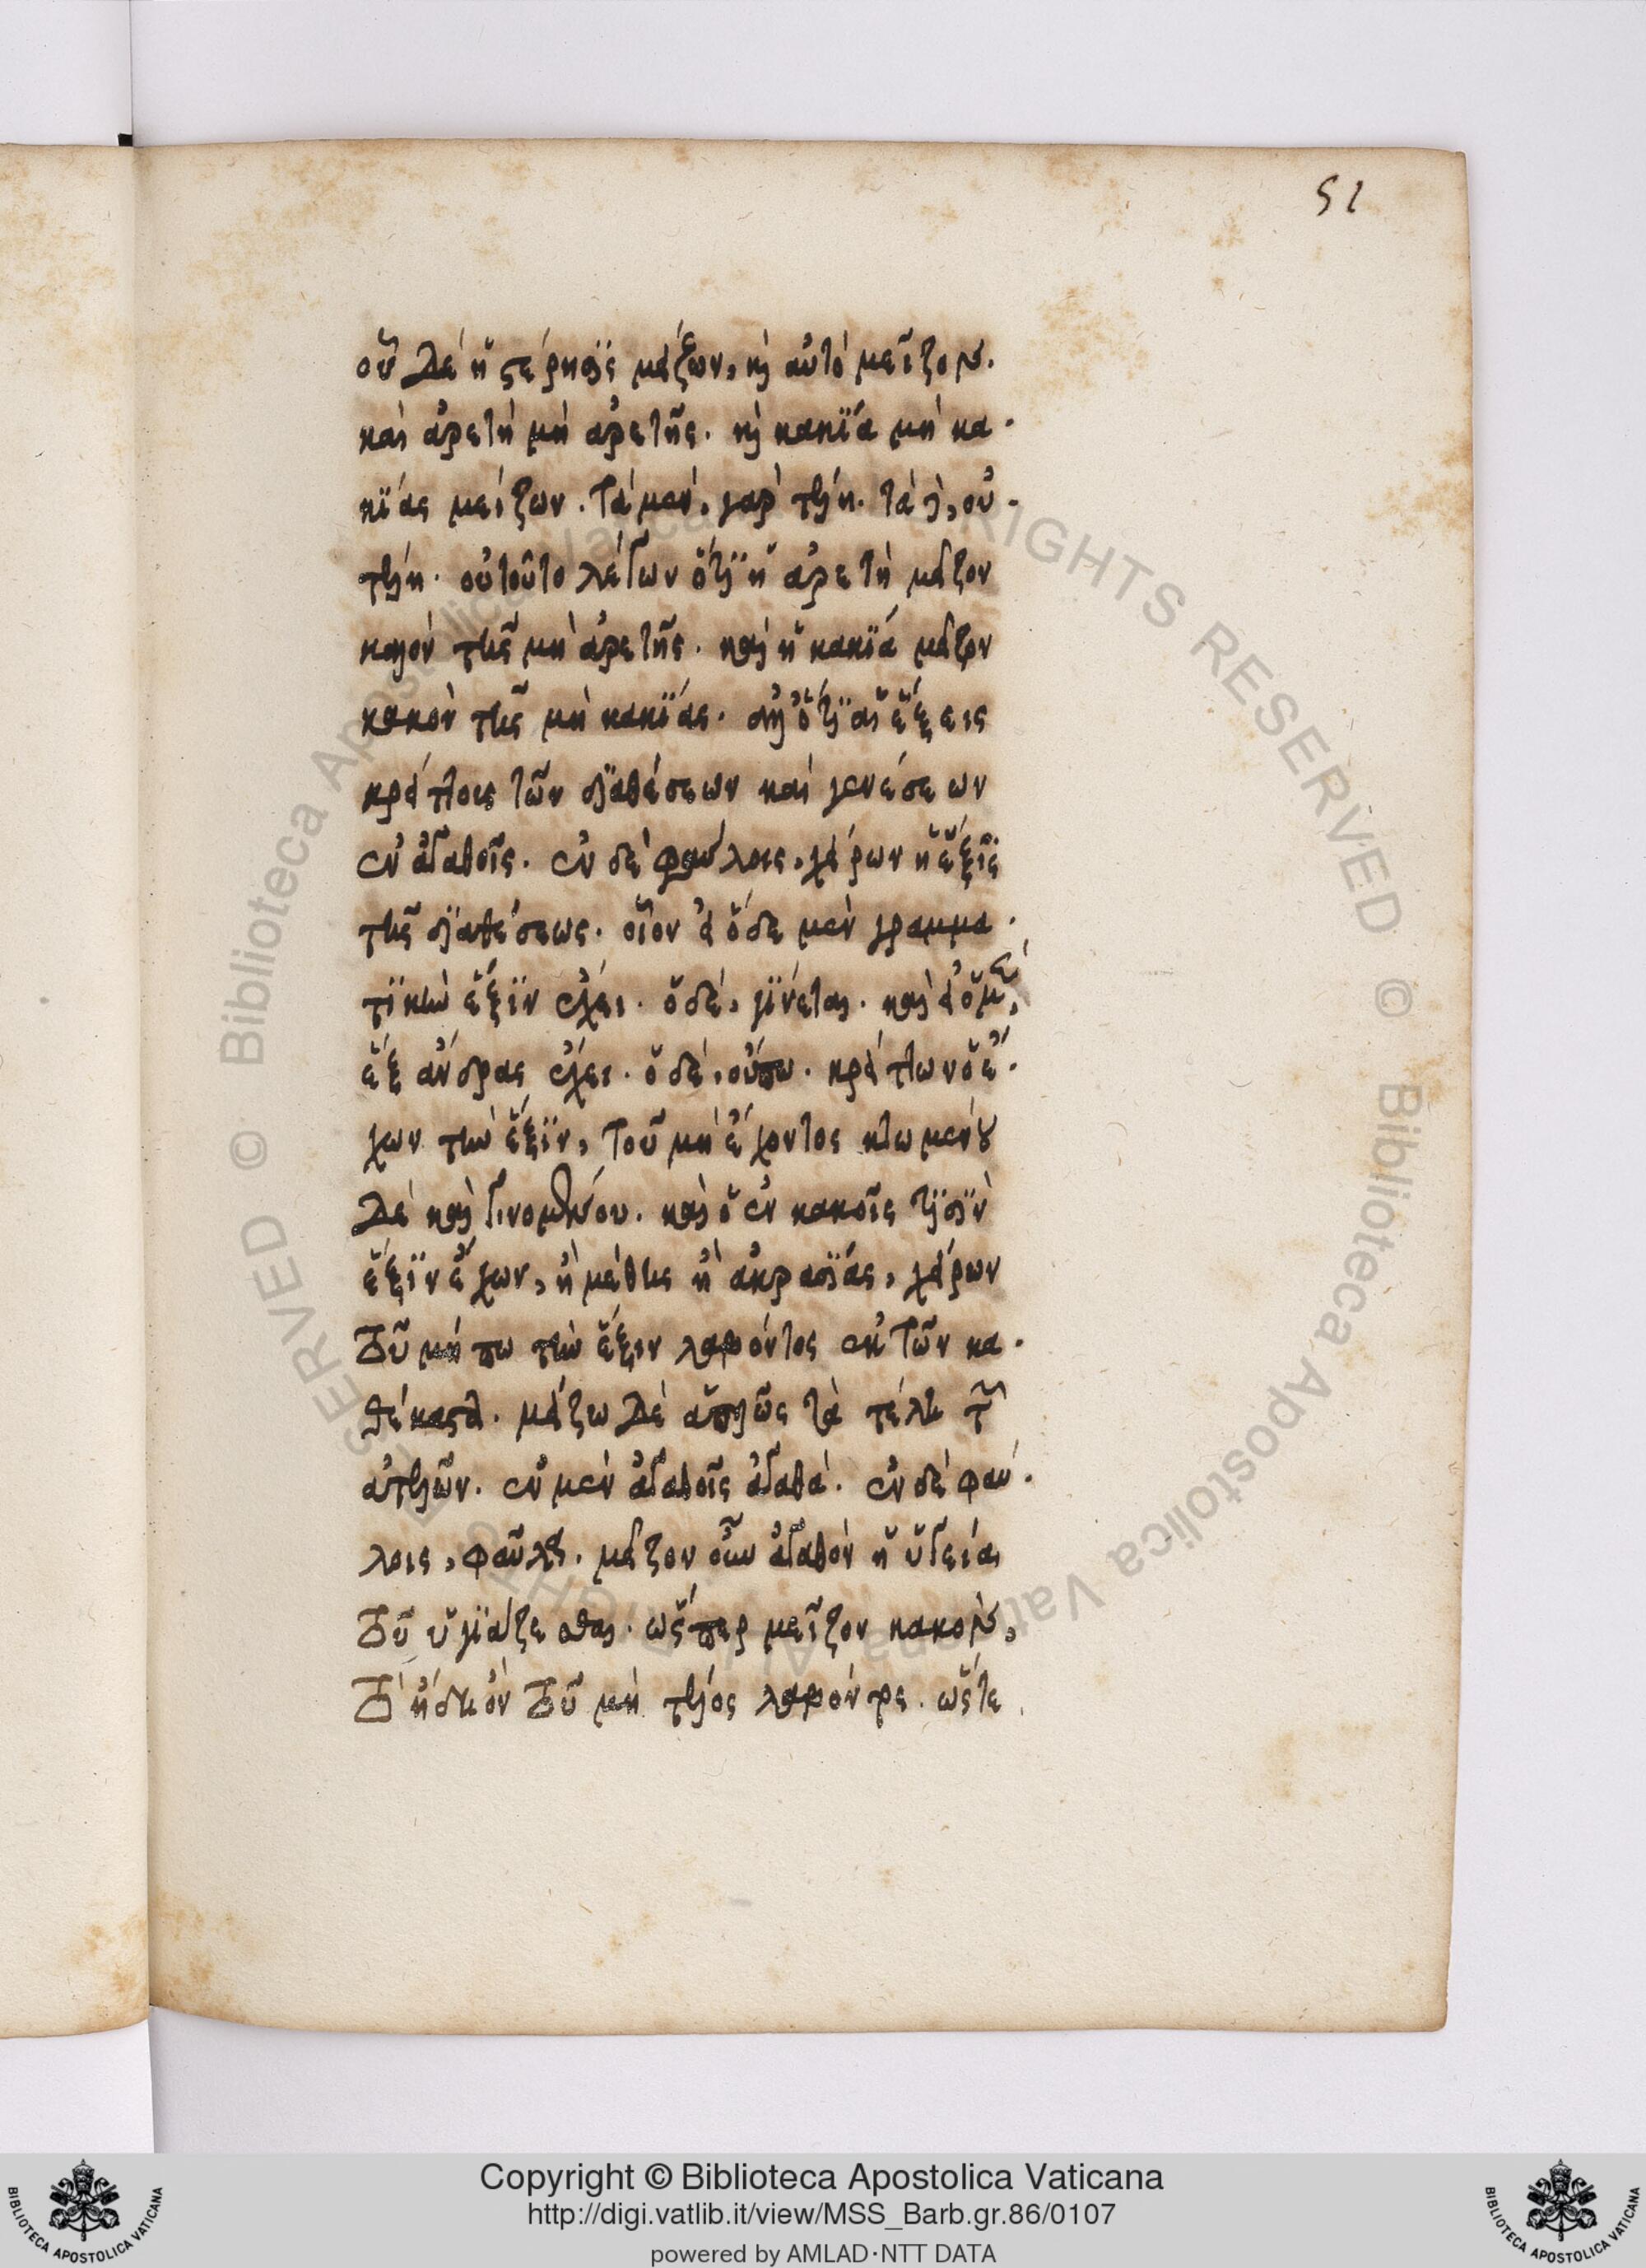 51
οὗ δὲ ἡ στέρησις μείζων, κὶ αὐτὸ μεῖζον.
καὶ ἀρετὴ μὴ ἀρετῆς. κὶ κακία μὴ κα-
κίας μείζων. τὰ μὲν, γὰρ τέλη. τὰ δ, οὐ
τέλη. οὐ τοῦτο λέγων ὅτι ἡ ἀρετὴ μεῖζον
καλὸν τῆς μὴ ἀρετῆς. καὶ ἡ κακία μεῖζον
κακὸν τῆς μὴ κακίας. ἀλλ' ὅτι αἱ ἕξεις
κρείττους τῶν διαθέσεων καὶ γενέσεων
ἐν ἀγαθοῖς. ἐν δὲ φαύλοις, χείρων ἡ ἕξις
τῆς διαθέσεως. οἷον εἰ ὅδε μὲν γραμμα-
τικὴν ἕξιν ἔχει. ὁ δὲ, γίνεται. καὶ εἰ ὁ μὲν,
ἓξ ἄνδρας ἔχει. ὁ δὲ, οὔπω. κρείττων ὁ ἔ-
χων τὴν ἕξιν, τοῦ μὴ ἔχοντος κτωμένου
δὲ καὶ γινομένου. καὶ ὁ ἐν κακοῖς τισὶν
ἕξιν ἔχων, ἢ μέθης ἢ ἀκρασίας, χείρων
τοῦ μήπω τὴν ἕξιν λαβόντος ἐκ τῶν κα-
θέκαστα. μείζω δὲ ἁπλῶς τὰ τέλη τῶν
ἀτελῶν. ἐν μὲν ἀγαθοῖς ἀγαθά. ἐν δὲ φαύ-
λοις, φαῦλα. μεῖζον οὖν ἀγαθὸν ἡ ὑγεία
τοῦ ὑγιάζεσθαι. ὥσπερ μεῖζον κακὸν,
τὸ ἤδη ὂν τοῦ μὴ τέλος λαβόντος. ὥστε
Copyright © Biblioteca Apostolica Vaticana
http://digi.vatlib.it/view/MSS_Barb.gr.86/0107
powered by AMLAD·NTT DATA